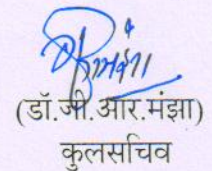 (डॉ.जी.आर.मंझा)
कुलसचिव